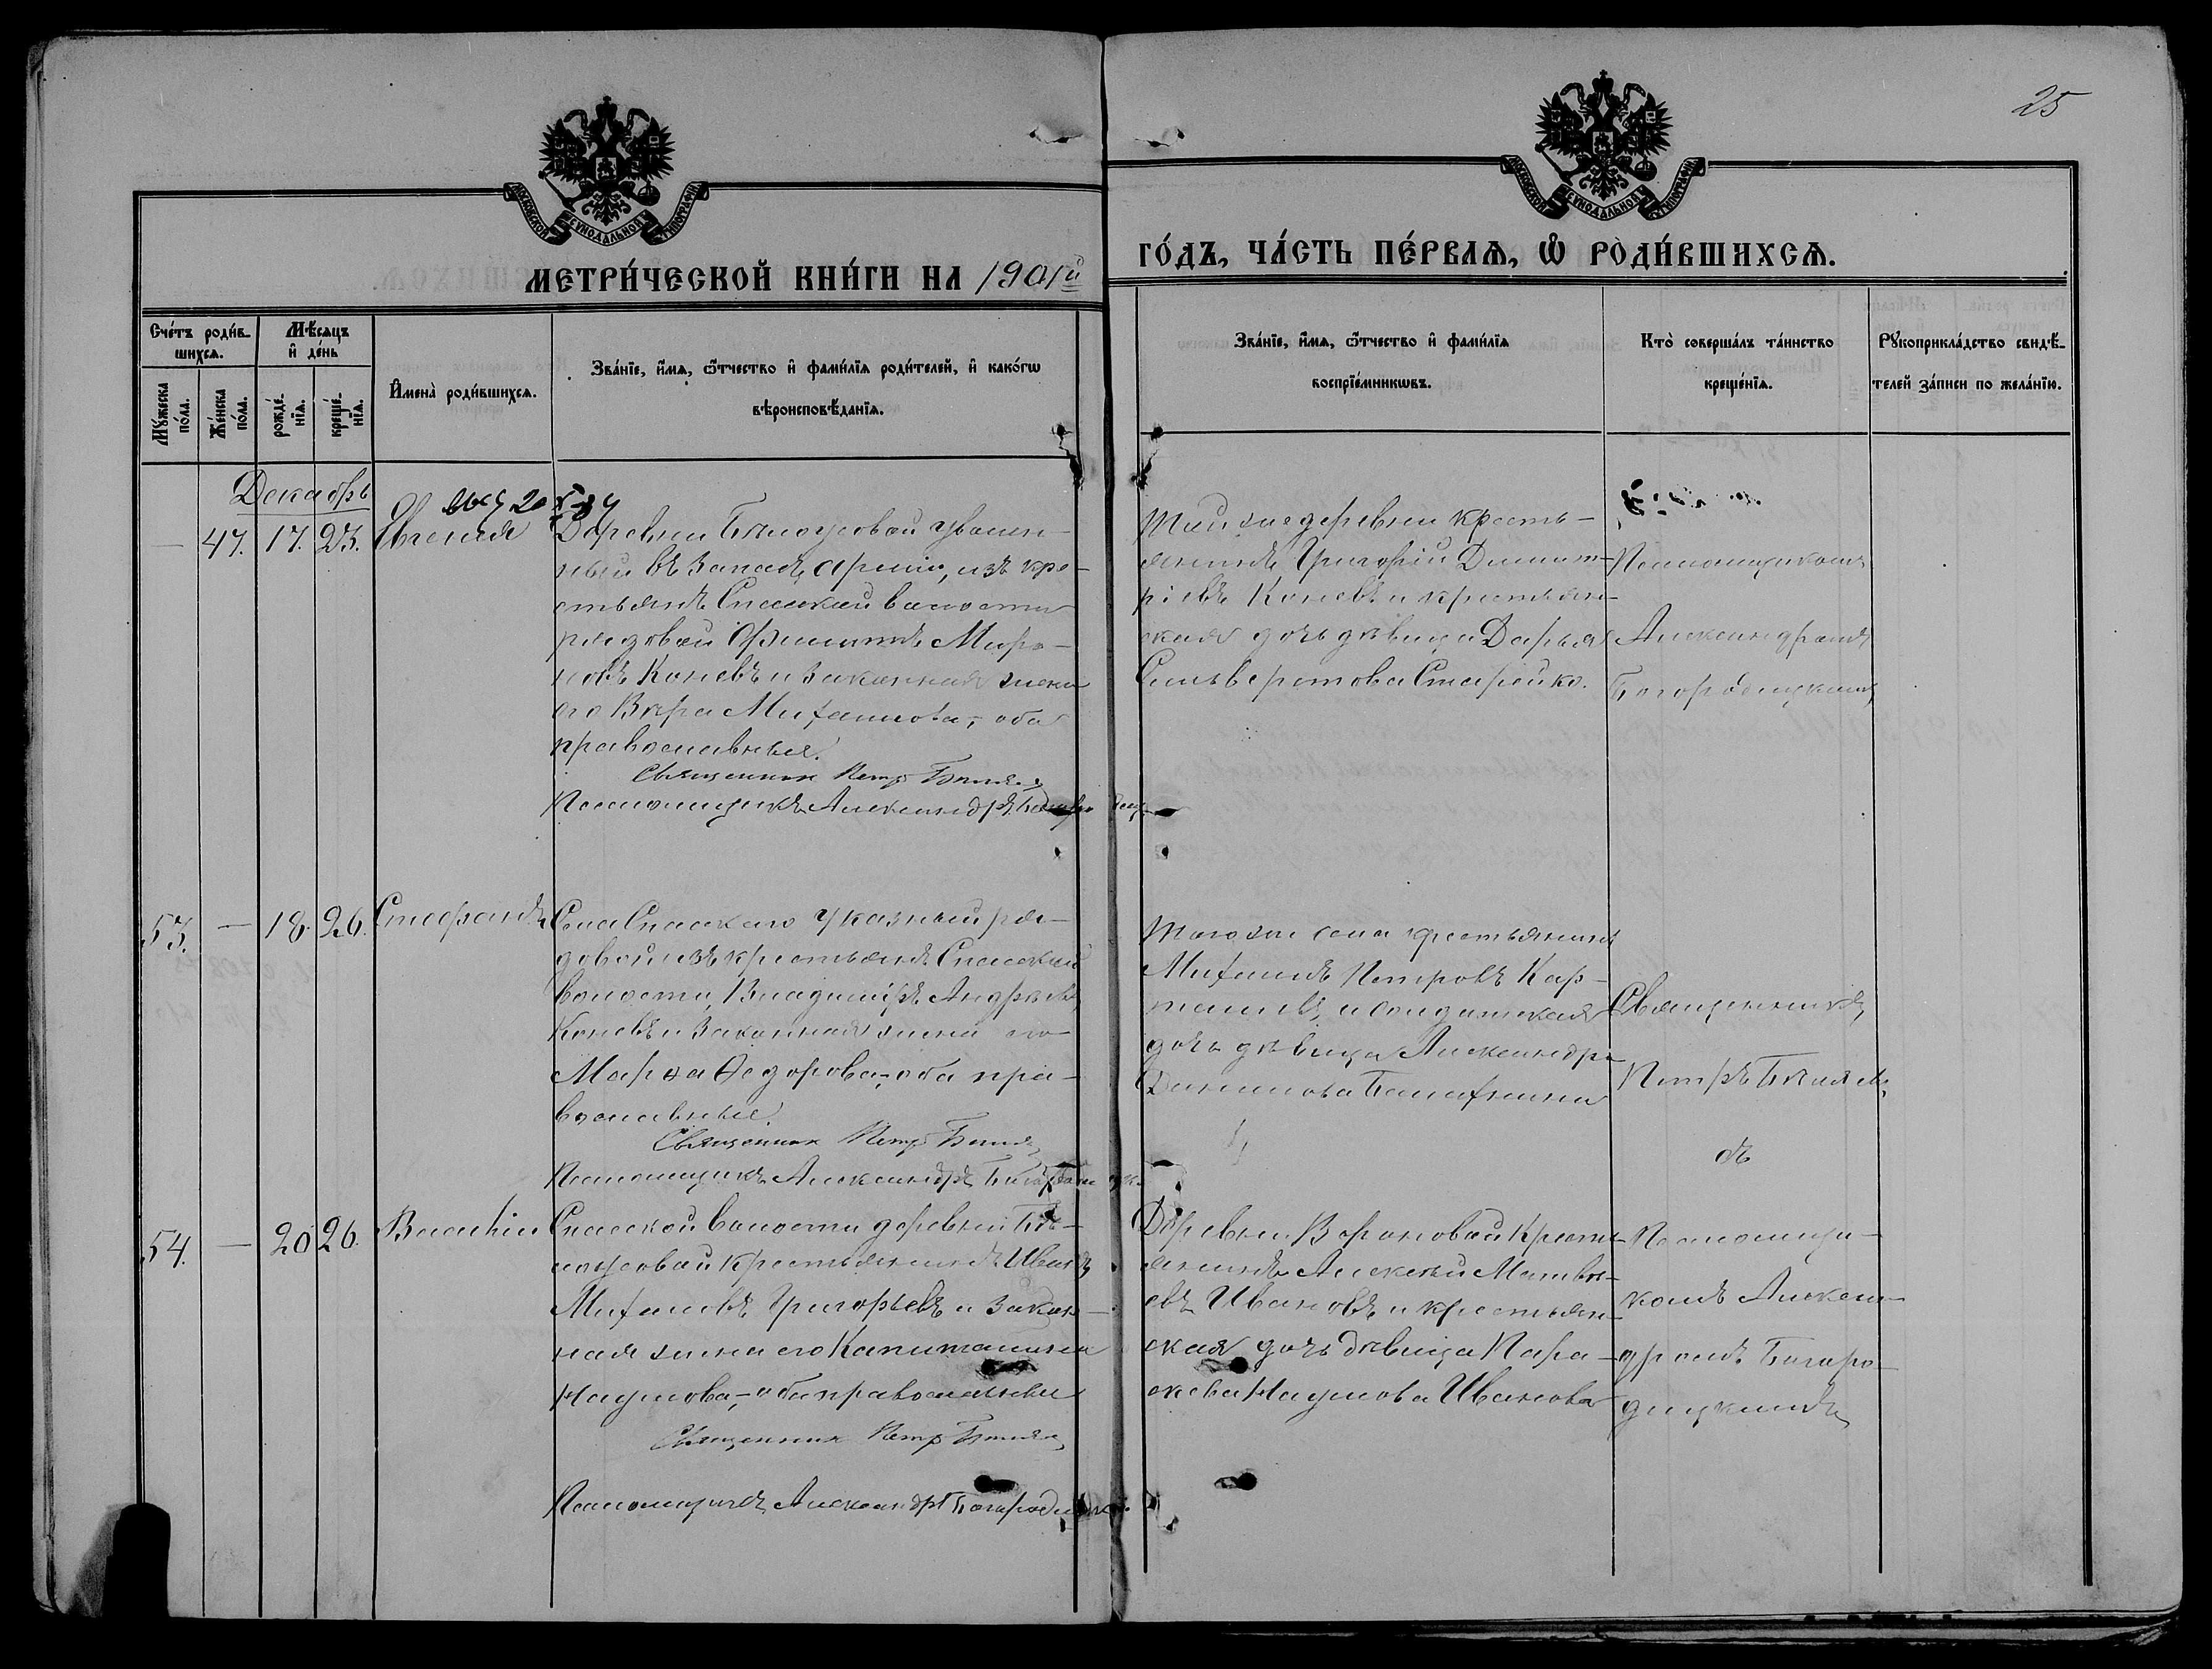 25
МОСКОВСКОЙ СѴНОДАЛЬНОЙ ТИПОГРАФІИ
МОСКОВСКОЙ СѴНОДАЛЬНОЙ ТИПОГРАФІИ
МЕТРИ́ЧЕСКОЙ КНИ́ГИ НА 1901й
ГО́ДЪ, ЧА́СТЬ ПЕ́РВАЯ, Ѽ РОДИ́ВШИХСЯ.
Сче́тъ роди́в-
шихся.
Мѣ́сяцъ
и҆ де́нь
Мꙋ́жеска по́ла.
Же́нска по́ла.
рожде́-нїя.
креще́-нїя.
И҆мена̀ роди́вшихся.
Зва́нїе, и҆́мя, ѻ҆́тчество и҆ фамн́лїя роди́телей, и҆ како́гѡ
вѣроисповѣ́данїя.
Зва́нїе, и҆́мя, ѻ҆́тчество и҆ фами́лїя
воспрїе́мникѡвъ.
Кто̀ соверша́лъ та́инство
креще́нїя.
Рꙋкоприкла́дство свидѣ́-
телей за́писи по жела́нїю.
Декабрь
— 47. 17. 23. Евгенія
Деревни Бѣлоусовой уволен-
ный въ запасъ арміи, изъ кре-
стьянъ Спасской волости
рядовой Филиппъ Миро-
новъ Коневъ и законная жена
его Вѣра Михаилова, оба
православные.
Священникъ Петръ Бѣляевъ
Псаломщикъ Александръ
Той же деревни кресть-
янинъ Григорій Димит-
ріевъ Коневъ и крестьян-
ская дочь дѣвица Дарья
Сельверстова
Псаломщикомъ
Александромъ
Богородицкимъ
53. — 18. 26. Стефанъ
Села Спасскаго указный ря-
довой изъ крестьянъ Спасской
волости, Владиміръ Андреевъ
Коневъ и законная жена его
Марѳа Ѳедорова, оба пра-
вославные.
Священникъ Петръ Бѣляевъ
Псаломщикъ Александръ
Того же села крестьянинъ
Михаилъ Петровъ Кар-
и солдатская
дочь дѣвица Александра
Данилова
Священникъ
Петръ Бѣляев-
ъ
54. — 20 26. Василій
Спасской волости деревни Бѣ-
лоусовой крестьянинъ Иванъ
Михаиловъ Григорьевъ и закон-
ная жена его Капитолина
Наумова, оба православные
Священникъ Петръ Бѣляевъ
Псаломщикъ Александръ Богородицкій
Деревни Вороновой кресть-
янинъ Алексѣй Матвѣ-
евъ Ивановъ и крестьян-
ская дочь дѣвица Пара-
скева Наумова Иванова
Псаломщи-
комъ Алексан-
дромъ Богоро-
дицкимъ